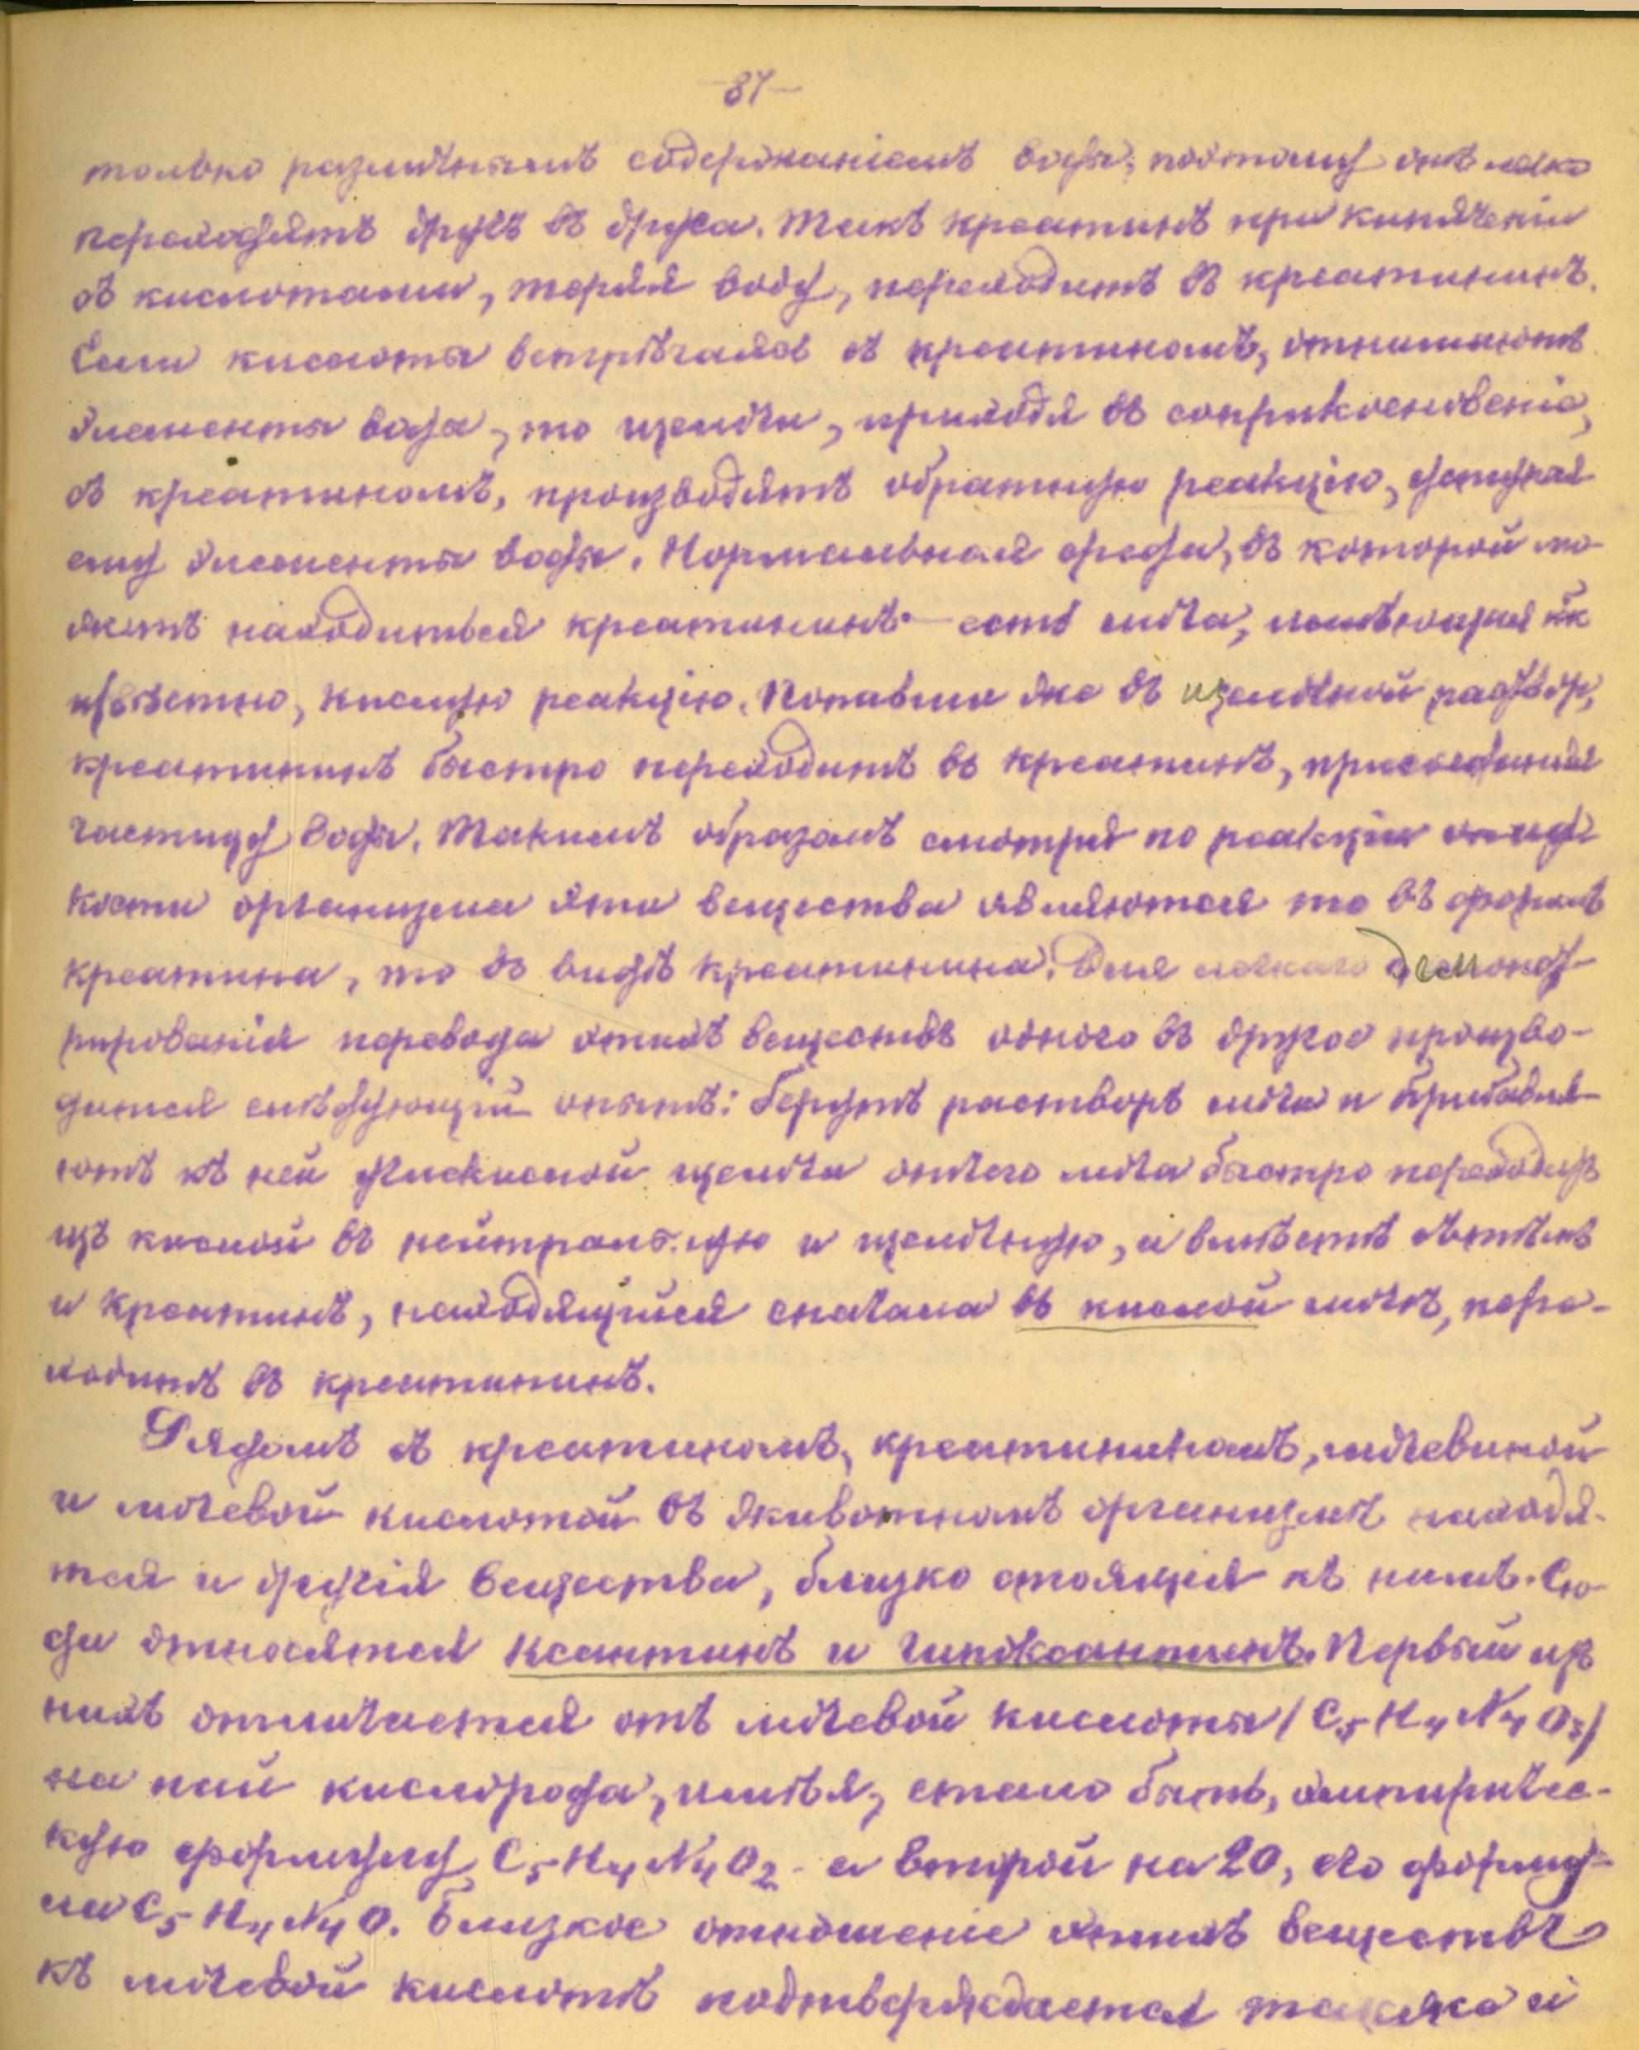 -87-
только различнымъ содержаніемъ воды; поэтому они легко
переходятъ другъ въ друга. Такъ креатинъ при кипяченіи
съ кислотами, теряя воду, переходитъ въ креатининъ.
Если кислоты встрѣчаясь съ креатиномъ, отнимаютъ
элементы воды, то щелочи, приходя въ соприкосновеніе,
съ креатиномъ, производятъ обратную реакцію, уступая
ему элементы воды. Нормальная среда, въ которой мо-
жетъ находиться креатининъ — есть моча, имѣющая
извѣстно, кислую реакцію. Попавши же въ щелочной раство́ръ,
креатининъ быстро переходитъ въ креатинъ, присоединяя
частицу воды. Такимъ образомъ смотря по реакціи жид
кости организма эти вещества являются то въ формѣ
креатина, то въ видѣ креатинина. Для легкаго демонст-
рированія перевода этихъ веществъ одного въ другое произво-
дится слѣдующій опытъ: Берутъ растворъ мочи и прибавля-
ютъ къ ней щелочи отчего моча быстро переходитъ
изъ кислой въ нейтральную и щелочную, а вмѣстѣ съ тѣмъ
и креатинъ, находящійся сначала въ кислой мочѣ, пере-
ходитъ въ креатининъ.
Рядомъ съ креатиномъ, креатининомъ, мочевиной
и мочевой кислотой въ животномъ организмѣ находя-
тся и другія вещества, близко стоящія къ нимъ. Сю-
да относятся ксантинъ и гипоксантинъ. Первый изъ
нихъ отличается отъ мочевой кислоты (C5H4N4O3)
на пай кислорода, имѣя, стало быть, эмпиричес-
кую формулу C5H4N4O2 - а второй на 2O, его форму-
ла C5H4N4O. Близкое отношеніе этихъ веществъ
къ мочевой кислотѣ подтверждается также и